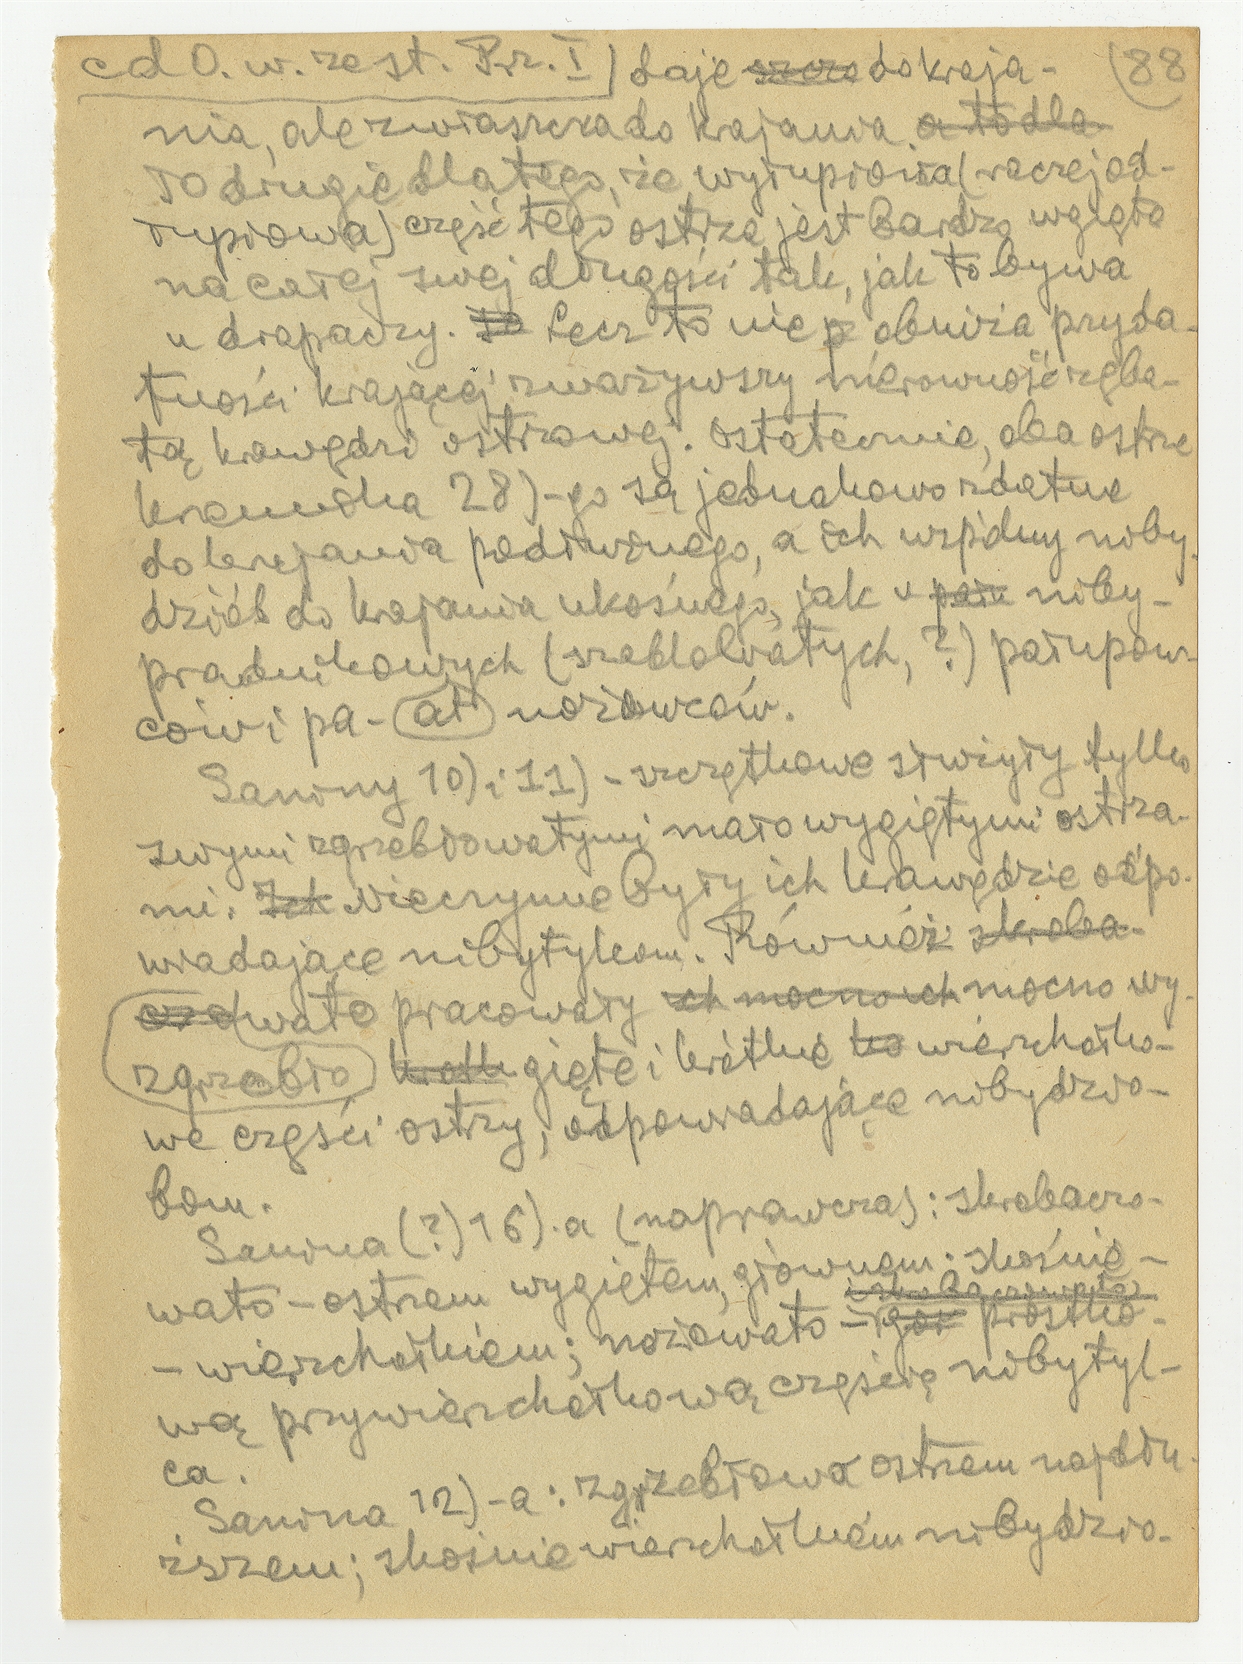 cd O. w. zest. Pr. I) daje do kraja- (88
nia, ale zwłaszcza do krajania a to dla
To drugie dlatego, że wyłupiowa (raczej od-
łupiowa) część tego ostrza jest bardzo wgięta
na całej swej długości tak, jak to bywa
u drapaczy. To Lecz to nie obniża przyda-
tności krającej zważywszy nierowność zęba-
tą krawędzi ostrzowej. Ostatecznie, oba ostrze
krzemyka 28)-go są jednakowo zdatne
do krajania podłużnego, a ich wspólny niby-
dziób do krajania ukośnego, jak u niby-
prądnikowych (szablolwatych, ?) półtupow-
ców i pa- ał nożowców.
Saniny 10) i 11) - szczętkowe służyły tylko
swymi zgrzebłowatymi mało wygiętymi ostrza-
mi. Ich Nieczynne były ich krawędzie odpo-
wiadające nibytylcom. Również skroba-
wato pracowały ich mocno ich mocno wy-
zgrzebło krótk gięte i krótkie wierzchołko-
we części ostrzy, odpowiadające nibydzio-
bom.
Sanina (?) 16)-a (naprawcza): skrobaczo-
wato - ostrzem wygiętem, głównem; skośnie -
- wierzchołkiem; nożowato - prostko-
wą przywierzchołkową częścią nibytyl-
ca.
Sanina 12)-a: zgrzebłowo ostrzem najdłu-
ższem; skośnie wierzchołkiem nibydzio-